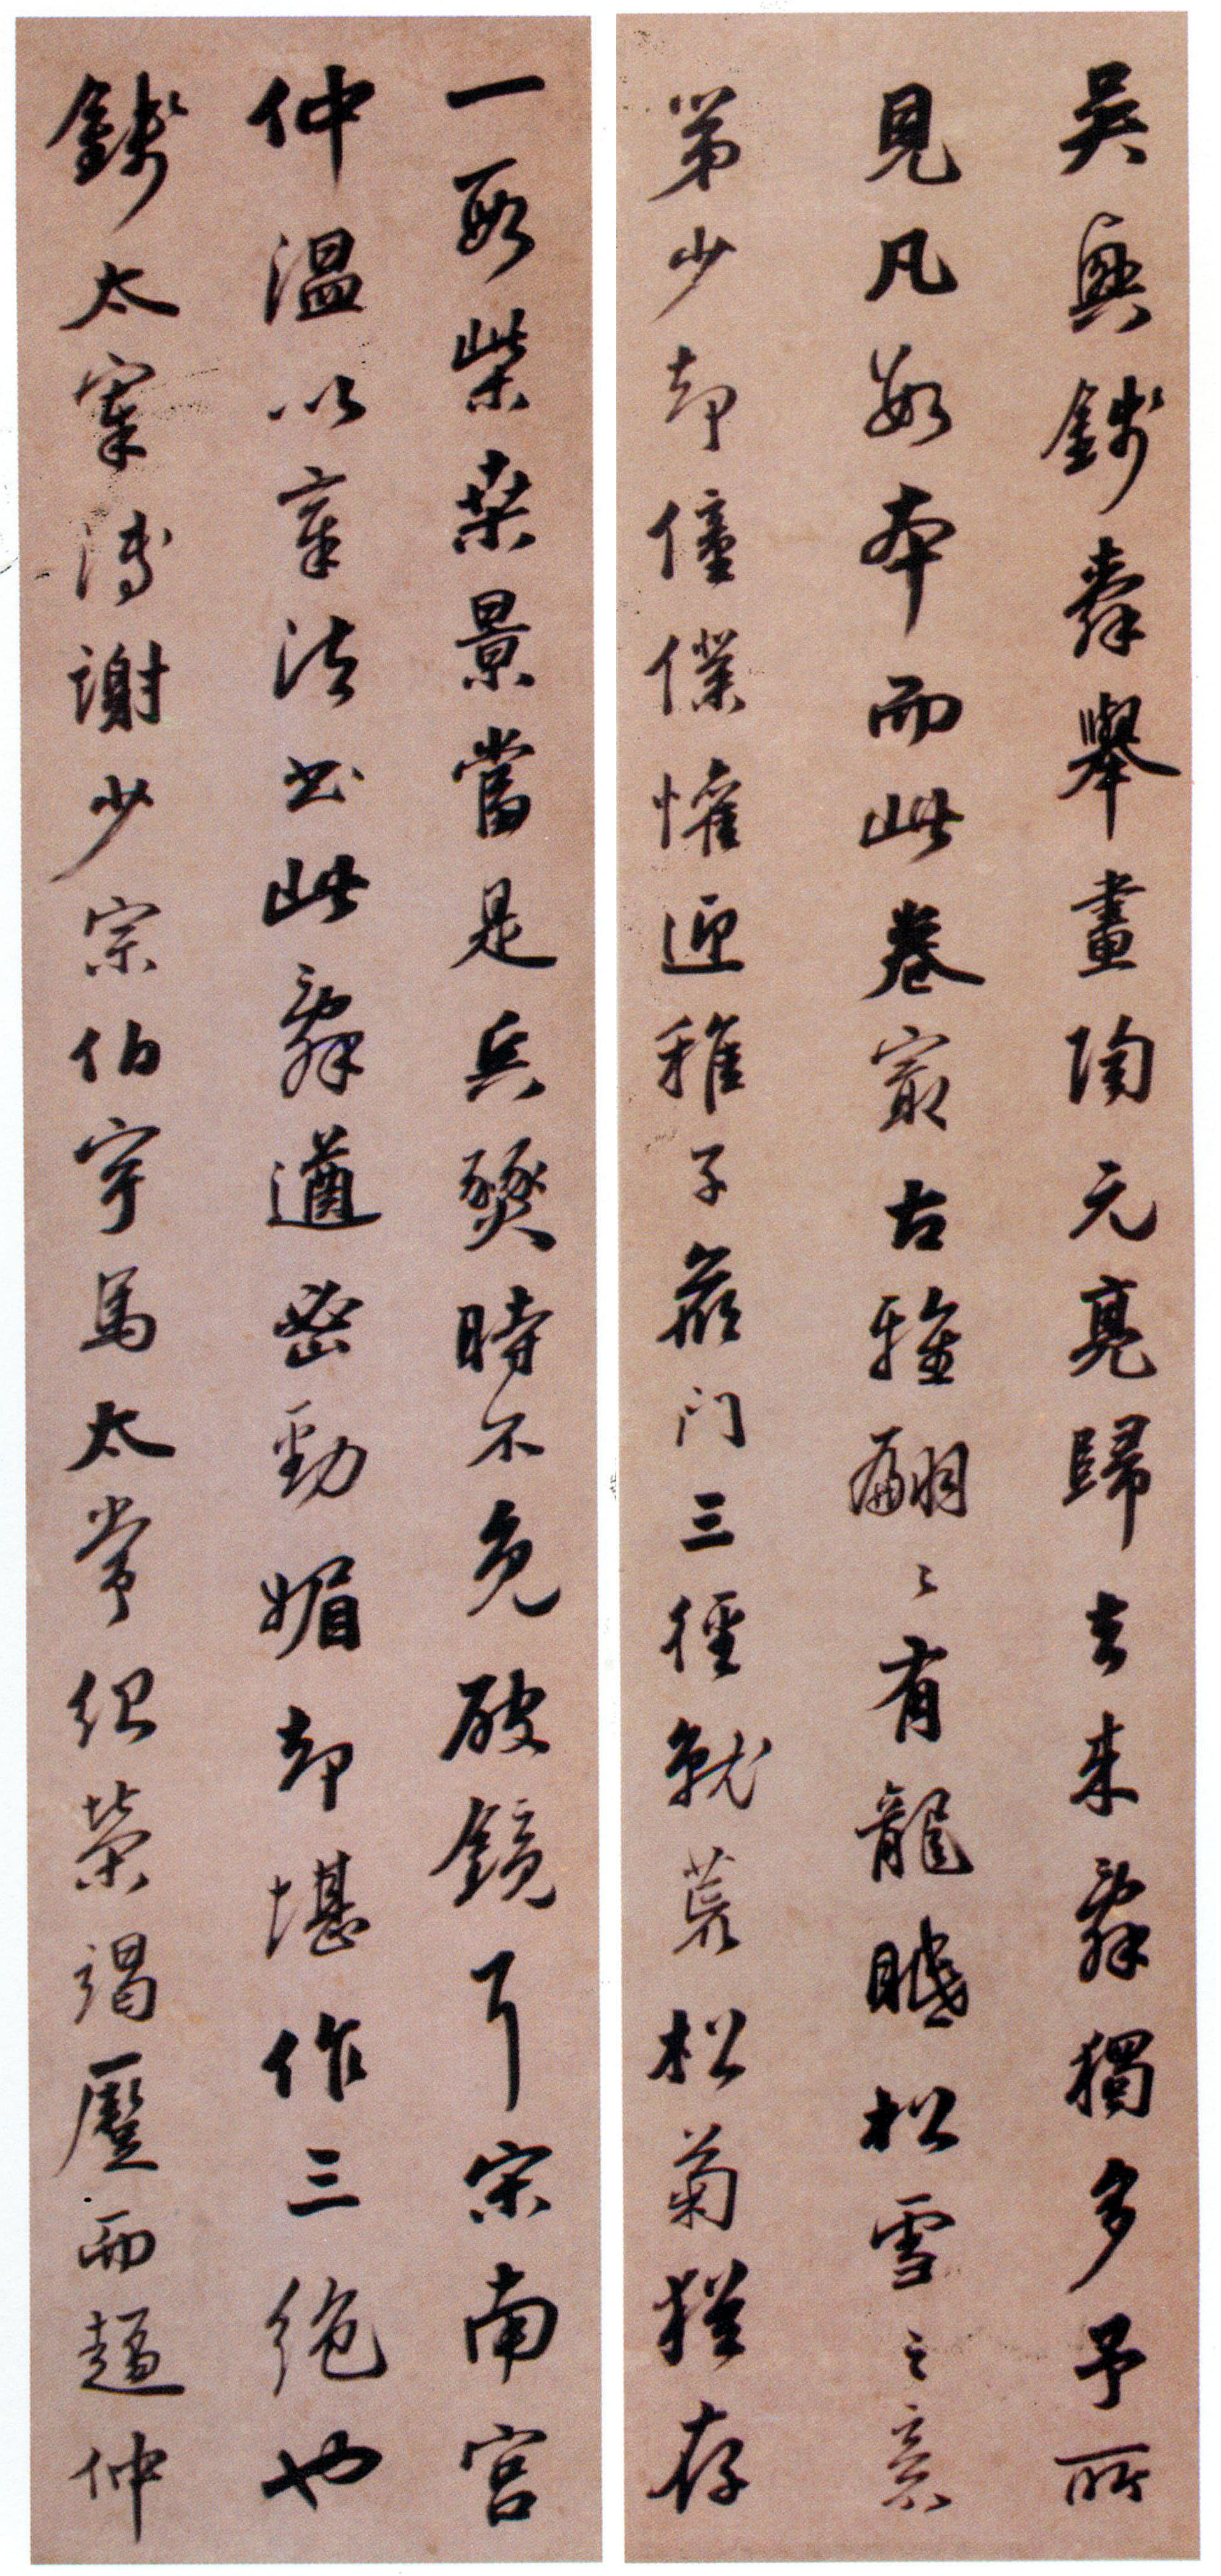 吳興錢舜舉畫陶元亮歸去来辭獨多予所
見凡數本而此卷寂古雅翩〻有龍眠松雪之意
第少却僮僕懽迎稚子候門三徑就荒松菊猶存
一段柴桑景當是兵燹時不免破鏡耳宋南宮
仲温以章法書此辭遒密勁媚却堪作三絶也
錢太宰溥謝少宗伯宇馬太常紹榮謁歷而趙仲